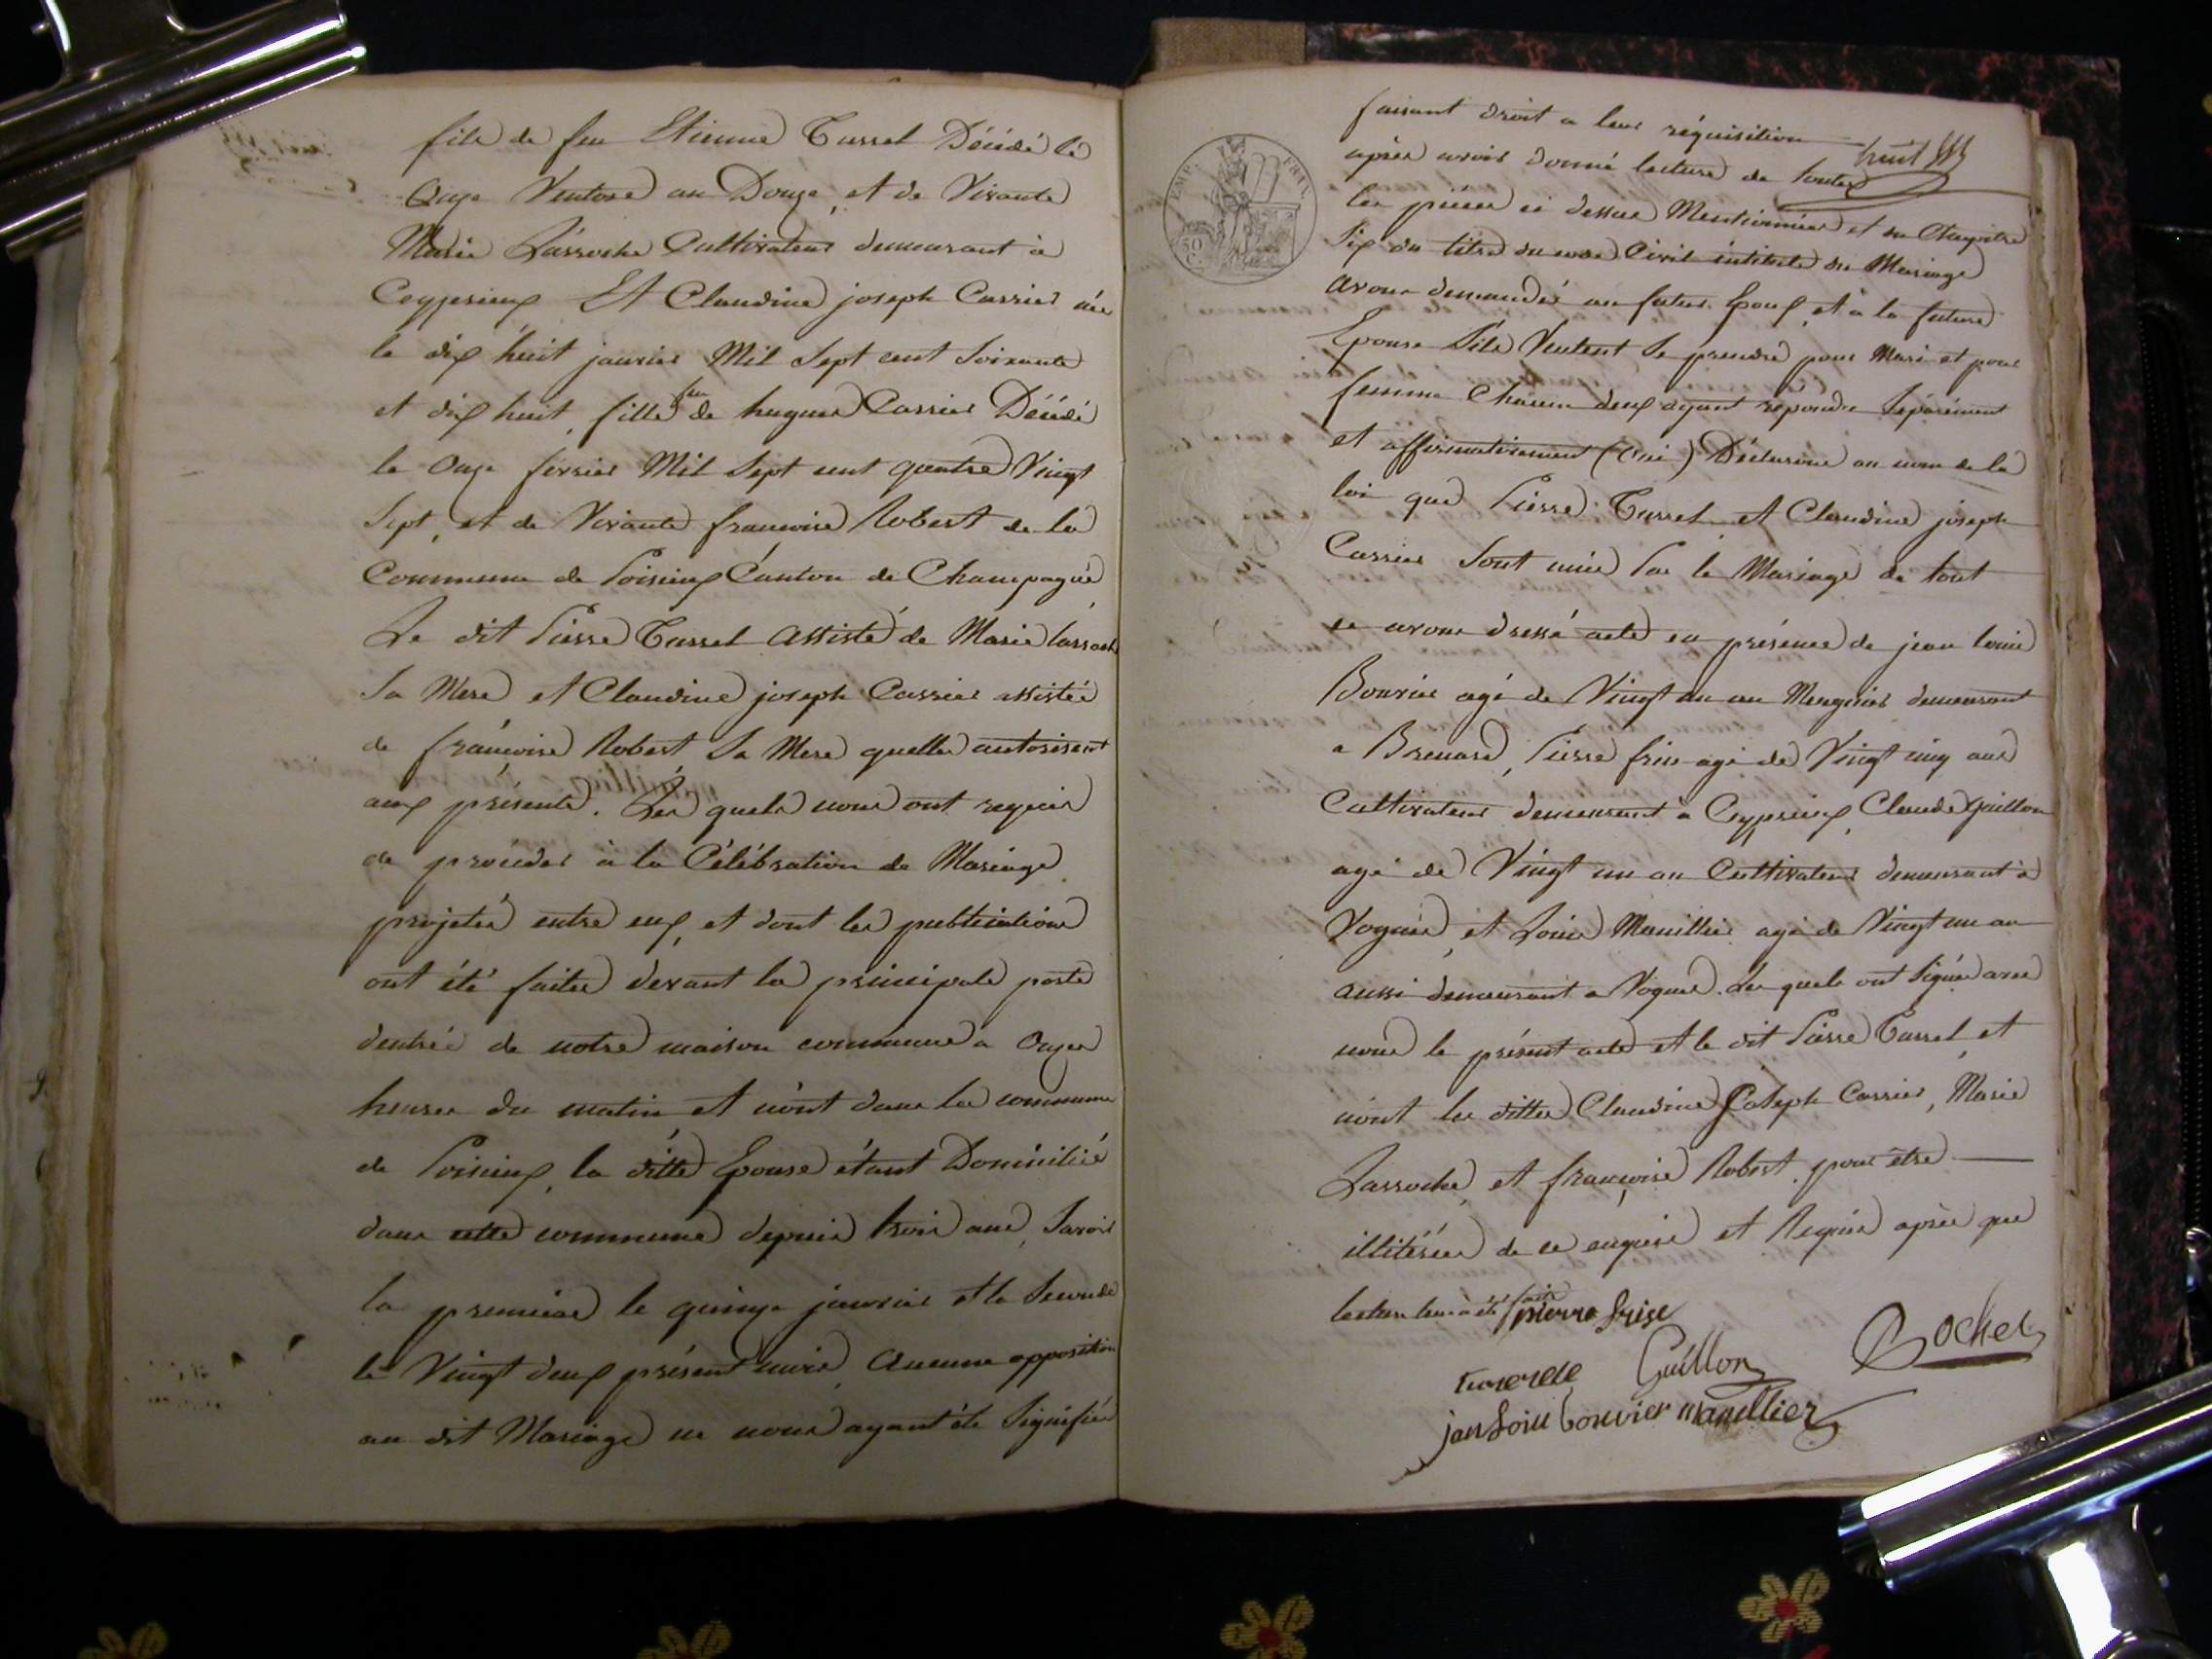 fils de feu Etienne Turrel Décédé le
Onze Ventose an Douze, et de Vivante
Marie Larroche Cultivateur demeurant à
Ceyprieux Et Claudine joseph Carrier née
le dix huit janvier Mil Sept cent Soixante
et dix huit, fille de feu hugues Carrier Décédé
le Onze fevrier Mil Sept cent quatre Vingt
Sept, et de Vivante francoise Robert de la
Commune de Poisieux Canton de Champagne
Le dit Pierre Turrel assisté de Marie larroche
Sa Mere et Claudine joseph Carrier assistée
de francoise Robert Sa Mere quelles autorisent
aux présente. Les quels nous ont requis
de proceder à la Célébration de Mariage
projetée entre eux, et dont les publications
ont été faites devant la principale porte
dentrée de notre maison commune a Onzes
heures du matin et n'ont dans la commune
de Poisieux, la ditte Epouse étant Domiciliée
dans cette commune depuis trois ans, Savoir
la premiere le quinze janvier et la Seconde
le Vingt deux présent mois, Aucune opposition
au dit Mariage ne nous ayant été Signifiée
faisant droit a leur réquisition
huit
après avoir donné lecture de toutes
les pièces ci dessus Mentionnées et du Chapitre
Six du titre du code Civil intitulé du Mariage
avons demandé au futur Epoux et à la future
Epouse S'ils Veulent Se prendre pour Mari et pour
femme Chacun deux ayant répondu Séparément
et affirmativement (Oui) Déclarons au nom de la
loi que Pierre Turrel et Claudine joseph
Carrier Sont unis Par le Mariage de tout
ce avons dressé acte en présence de jean louis
Bouvier agé de Vingt un an demeurant
a Brenard, Pierre frise agé de Vingt cinq ans
Cultivateur demeurant a Ceyprieux, Claude Guillon
agé de Vingt un an Cultivateur demeurant à
Vognes, et Louis Manillier agé de Vingt un an
aussi demeurant a Vognes. Les quels ont Signés avec
nous le présent acte et le dit Pierre Turrel, et
n'ont les dittes Claudine Joseph Carrier, Marie
Larroche, et françoise Robert, pour être
illitérées de ce enquise et Requise après que
lecture leur a été faite pierre frise
Guillon Rochet
jan Loiu bouvier manillier
EMP. FRAN.
50 C.